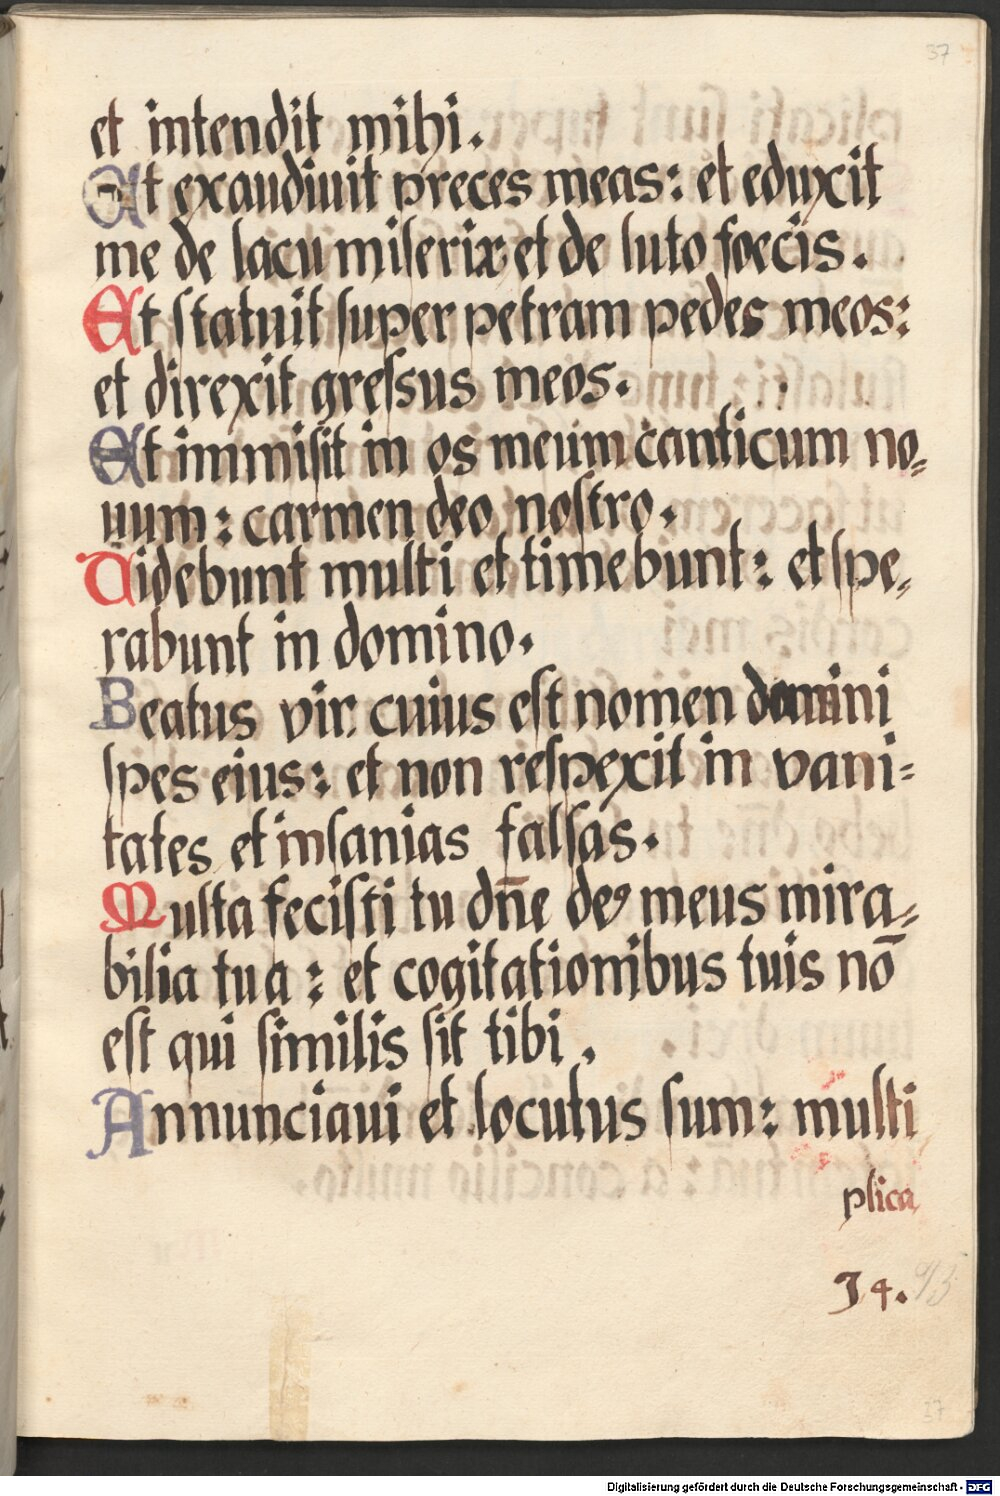 37
et intendit mihi.
Et exaudiuit preces meas: et eduxit
me de lacu miseriæ et de luto foecis.
Et statuit super petram pedes meos:
et direxit gressus meos.
Et immisit in os meum canticum no-
uum: carmen deo nostro.
Uidebunt multi et timebunt: et spe-
rabunt in domino.
Beatus vir. cuius est nomen domini
spes eius: et non respexit in vani-
tates et insanias falsas.
Multa fecisti tu dñe deꝰ meus mira-
bilia tua: et cogitationibus tuis nō
est qui similis sit tibi.
Annunciaui et locutus sum: multi
plica
34.
37
Digitalisierung gefördert durch die Deutsche Forschungsgemeinschaft - DFG